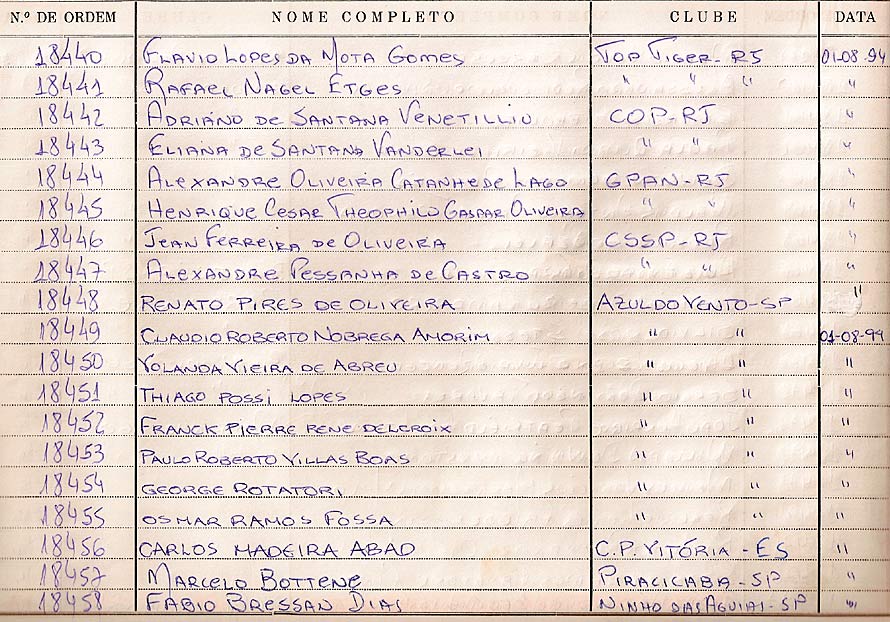 N.º DE ORDEM NOME COMPLETO CLUBE DATA
18440 FLAVIO LOPES DA MOTA GOMES TOP TIGER-RJ 01-08-94
18441 RAFAEL NAGEL ETGES " " " "
18442 ADRIANO DE SANTANA VENETILLIO COP-RJ "
18443 ELIANA DE SANTANA VANDERLEI " " "
18444 ALEXANDRE OLIVEIRA CATANHEDE LAGO GPAN-RJ "
18445 HENRIQUE CESAR THEOPHILO GASPAR OLIVEIRA " " "
18446 JEAN FERREIRA DE OLIVEIRA CSSP-RJ "
18447 ALEXANDRE PESSANHA DE CASTRO " " "
18448 RENATO PIRES DE OLIVEIRA AZUL DO VENTO-SP "
18449 CLAUDIO ROBERTO NOBREGA AMORIM " " 01-08-94
18450 YOLANDA VIEIRA DE ABREU " " "
18451 THIAGO POSSI LOPES " " "
18452 FRANCK PIERRE RENE DELCROIX " " "
18453 PAULO ROBERTO VILLAS BOAS " " "
18454 GEORGE ROTATORI " " "
18455 OSMAR RAMOS FOSSA " " "
18456 CARLOS MADEIRA ABAD C.P. VITÓRIA - ES "
18457 MARCELO BOTTENE PIRACICABA-SP "
18458 FABIO BRESSAN DIAS NINHO DAS AGUIAS-SP "